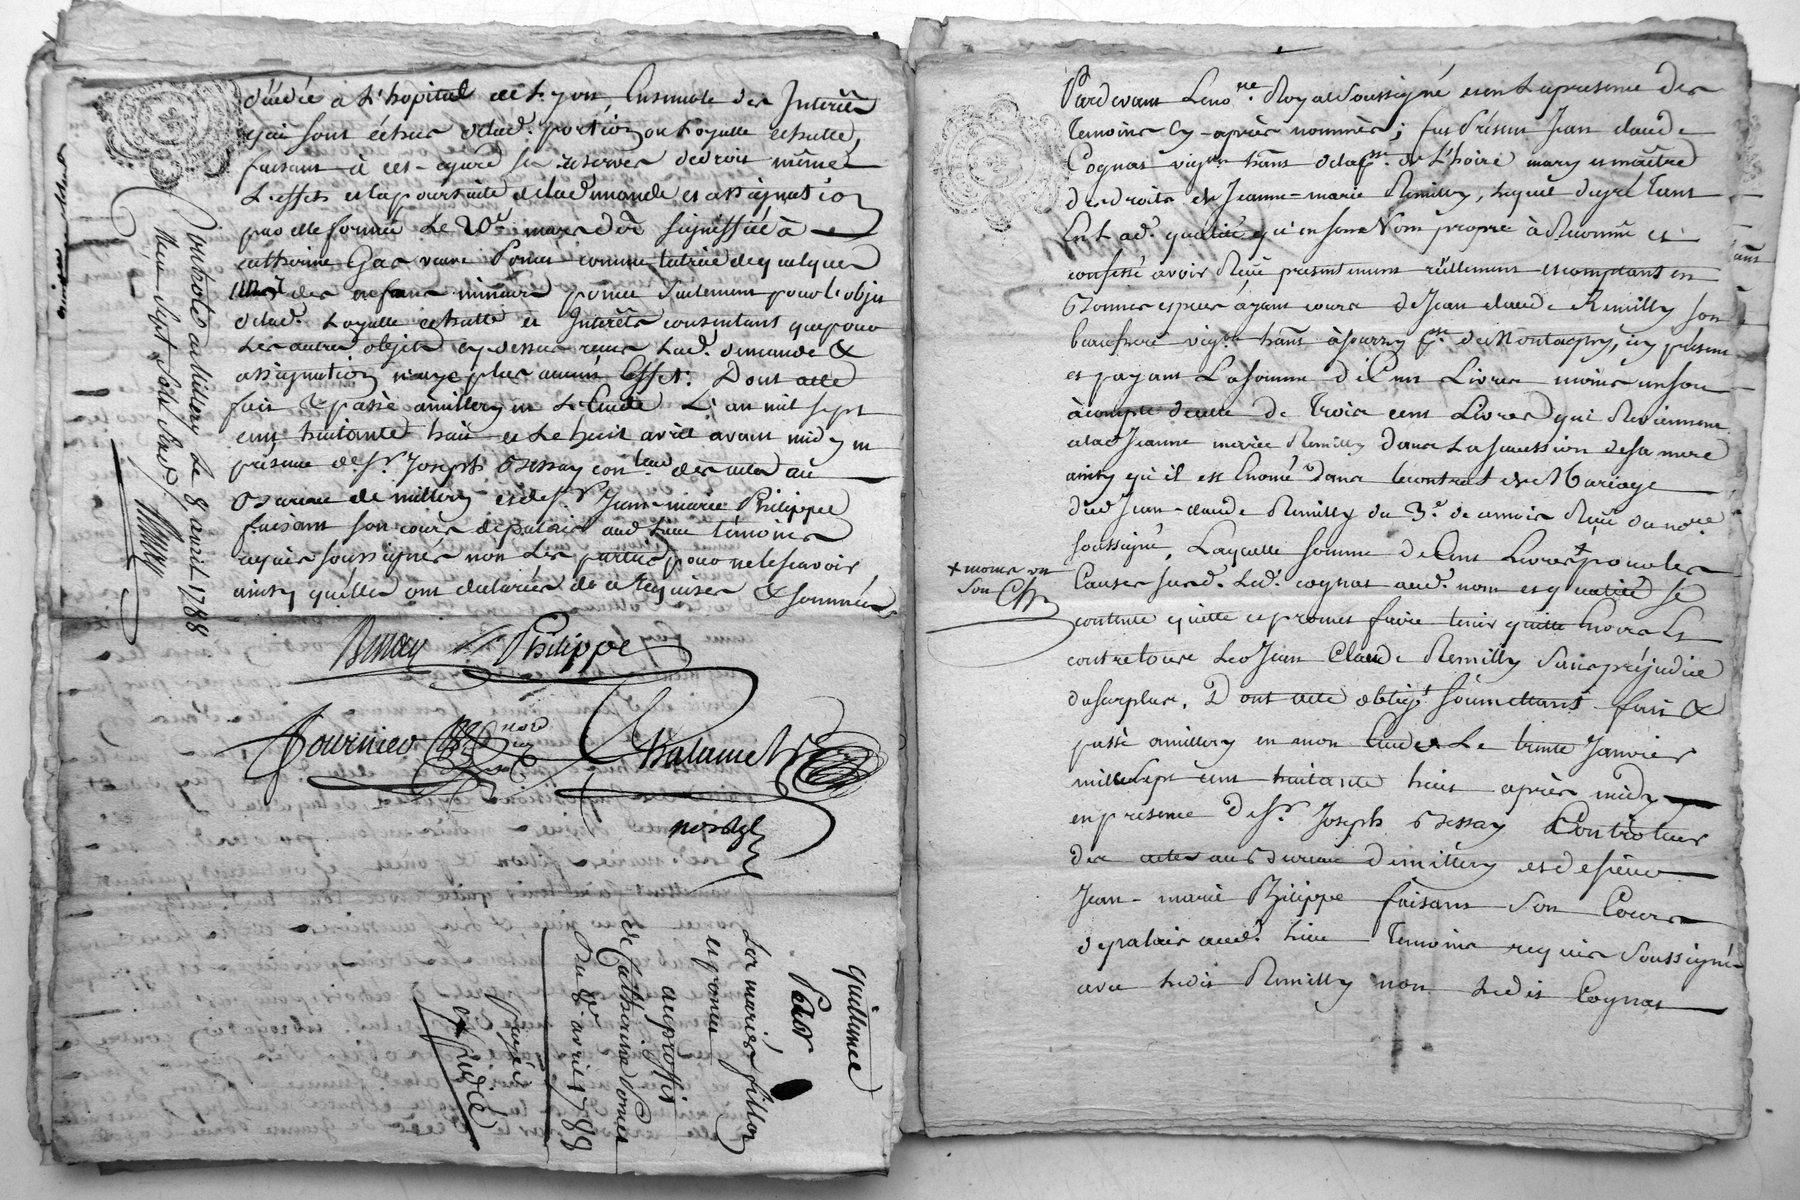 à L'hopital de Lyon, Ensemble des Interêts
qui sont échus de lad. portion ou Loyalle echutte,
faisant à cet-egard se réserver de droit même
L'effet et la poursuitte de lad. demande et assignation
par elle formée Le mars dr. signiffiée à
catherine Gas veuve Poncet comme tutrice de quelques
des enfans mineurs poncet seulement pour l'objet
de lad. Loyalle echutte et Interêts consentant que pour
Les autres objets cy dessus Lad. demande &
assignation n'aye plus aucun Effet. Dont acte
fait & passé a millery en L'Etude L'an mil sept
cent huitante huit et Le huit avril avant midy en
présence de Sr. Joseph Bessay con.leur des actes au
Bureau de millery et de Sr. Jean-marie Philippe
faisant son cours de palais aud. Lieu témoins
requis soussignés non Les parties pour ne le sçavoir
ainsy qu'elles ont declarées de ce requises & sommées
Bessay Philippe
Fournier Chalamel
Controlé a millery Le 8 avril 1788
Reçu sept sols six d. Bessay
quittance
Par
Les mariés fillon
et poncet
au proffit
de Catherine Poncet
Du 8 avril 1788
Payée
expediée
Pardevant Le no.re Royal soussigné et en La presence des
Temoins Cy-après nommés; fut présent Jean claude
Cognat vig.on hant de la psse. de L'hoire mary et maître
des droits de Jeanne-marie Remilly, Lequel de gré tant
En Lad. qualité qu'en son Nom propre à Reconnu et
confessé avoir Reçu presentement réellement et comptant en
Bonnes especes ayant cours de Jean claude Remilly son
beaufrere vig.on hant à Sourzy psse. de Montagny, icy présent
et payant La somme de Cent Livres moins un sou
à compte de celle de Trois cent Livres qui Reviennent
a lad. Jeanne marie Remilly dans La succession de sa mere
ainsy qu'il est Enoncé dans le contrat de Mariage
dud. Jean-claude Remilly du 3e. de ce mois Reçu du no.re
soussigné, Laquelle somme de Cent Livres + pour les
Causes susd. Led. cognat aud. nom et qualité se
contente quitte et promet faire tenir quitte Envers Et
contre tous Led. Jean Claude Remilly sans préjudice
du surplus. Dont acte oblig.t soumettant fait &
passé a millery en mon Etude Le trente Janvier
mille sept cent huitante huit après midy
en présence de Sr. Joseph Bessay Controleur
des actes au Bureau de millery et de sieur
Jean-marie Philippe faisant son Cours
de palais aud. Lieu Temoins requis soussignés
avec Ledit Remilly non Ledit Cognat
+ moins un
sou